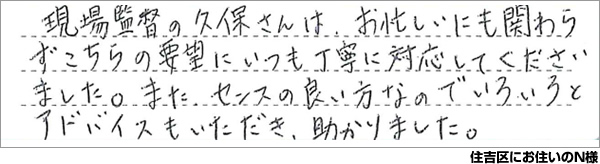 現場監督の久保さんは、お忙しいにも関わら
ずこちらの要望にいつも丁寧に対応してください
ました。また、センスの良い方なのでいろいろと
アドバイスもいただき、助かりました。
住吉区にお住いのN様